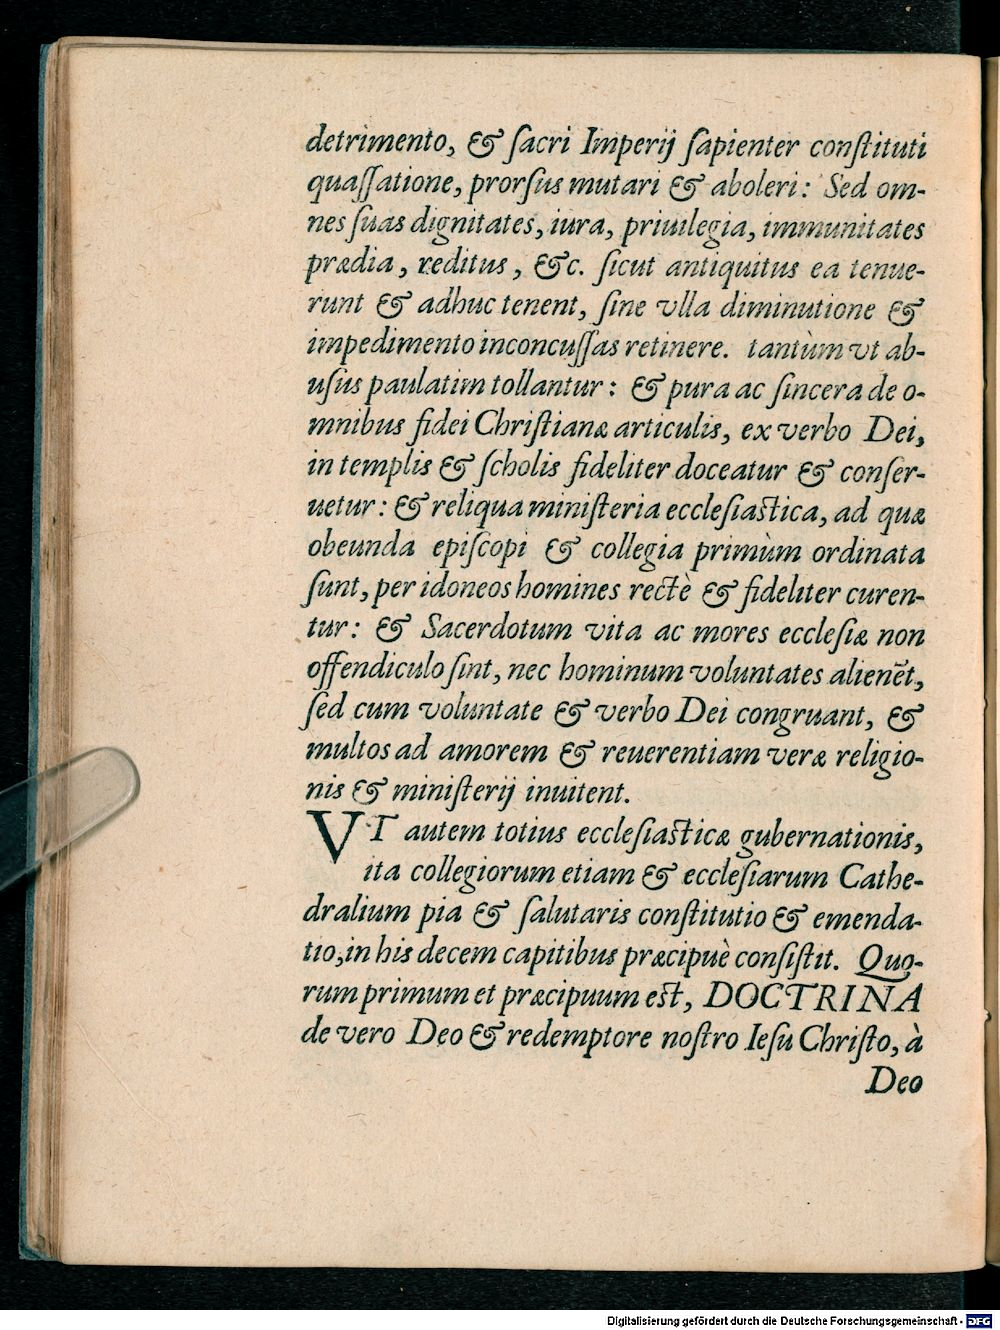 detrimento, & ſacri Imperij ſapienter conſtituti
quaſſatione, prorſus mutari & aboleri: Sed om-
nes ſuas dignitates, iura, priuilegia, immunitates
prædia, reditus, &c. ſicut antiquitus ea tenue-
runt & adhuc tenent, ſine vlla diminutione &
impedimento inconcuſſas retinere. tantùm vt ab-
uſus paulatim tollantur: & pura ac ſincera de o-
mnibus fidei Chriſtianæ articulis, ex verbo Dei,
in templis & ſcholis fideliter doceatur & conſer-
uetur: & reliqua miniſteria eccleſiaſtica, ad quæ
obeunda epiſcopi & collegia primùm ordinata
ſunt, per idoneos homines rectè & fideliter curen-
tur: & Sacerdotum vita ac mores eccleſiæ non
offendiculo ſint, nec hominum voluntates alienẽt,
ſed cum voluntate & verbo Dei congruant, &
multos ad amorem & reuerentiam veræ religio-
nis & miniſterij inuitent.
VT autem totius eccleſiaſticæ gubernationis,
ita collegiorum etiam & eccleſiarum Cathe-
dralium pia & ſalutaris conſtitutio & emenda-
tio, in his decem capitibus præcipuè conſiſtit. Quo-
rum primum et præcipuum eſt, DOCTRINA
de vero Deo & redemptore noſtro Ieſu Chriſto, à
Deo
Digitalisierung gefördert durch die Deutsche Forschungsgemeinschaft - DFG